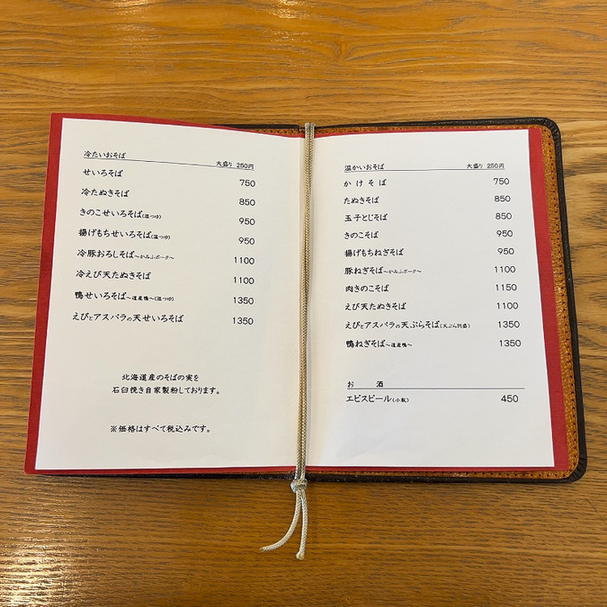 冷たいおそば 大盛り 250円
せいろそば 750
冷たぬきそば 850
きのこせいろそば(温つゆ) 950
揚げもちせいろそば(温つゆ) 950
冷豚おろしそば～かみふポーク～ 1100
冷えび天たぬきそば 1100
鴨せいろそば～道産鴨～(温つゆ) 1350
えびとアスパラの天せいろそば 1350
北海道産のそばの実を
石臼挽き自家製粉しております。
※価格はすべて税込みです。
温かいおそば 大盛り 250円
かけそば 750
たぬきそば 850
玉子とじそば 850
きのこそば 950
揚げもちねぎそば 950
豚ねぎそば～かみふポーク～ 1100
肉きのこそば 1150
えび天たぬきそば 1100
えびとアスパラの天ぷらそば(天ぷら別盛) 1350
鴨ねぎそば～道産鴨～ 1350
お 酒
エビスビール(小瓶) 450